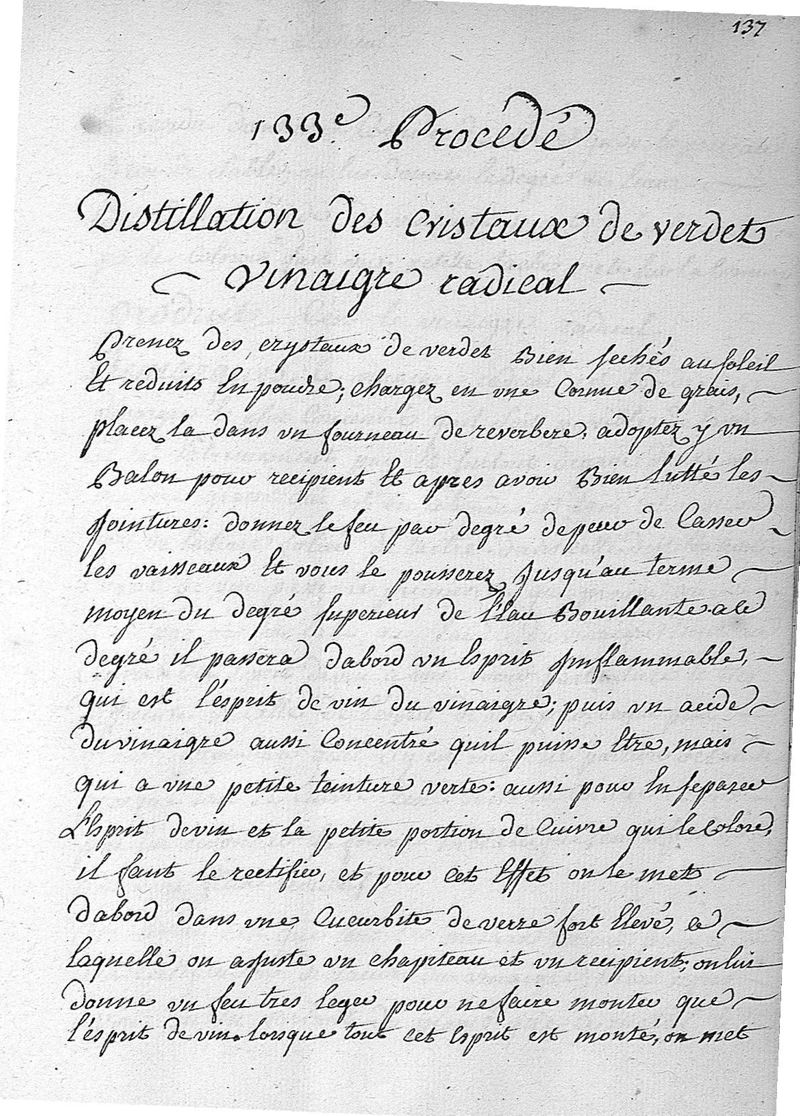 137
133.e Procédé
Distillation des cristaux de verdet
vinaigre radical
Prenez des crystaux de verdet Bien sechés au soleil
Et reduits En poudre; chargez en une Cornue de grais,
placez la dans un fourneau de reverbere, adoptez y un
Balon pour recipient Et apres avoir Bien lutté les
Jointures: donnez le feu par degré de peur de Casser
les vaisseaux Et vous le pousserez Jusqu'au terme
moyen du degré superieur de l'Eau Bouillante. a ce
degré il passera dabord un Esprit Jnflammable,
qui est l'esprit de vin du vinaigre; puis un acide
du vinaigre aussi Concentré quil puisse Etre, mais
qui a une petite teinture verte: aussi pour En separer
L'Esprit de vin et la petite portion de Cuivre qui le Colore,
il faut le rectifier, et pour cet Effet on le met
dabord dans une Cucurbite de verre fort Elevé, a
laquelle on ajuste un chapiteau et un recipient; on lui
donne un feu tres leger pour ne faire monter que
l'esprit de vin. lorsque tout cet Esprit est monté, on met